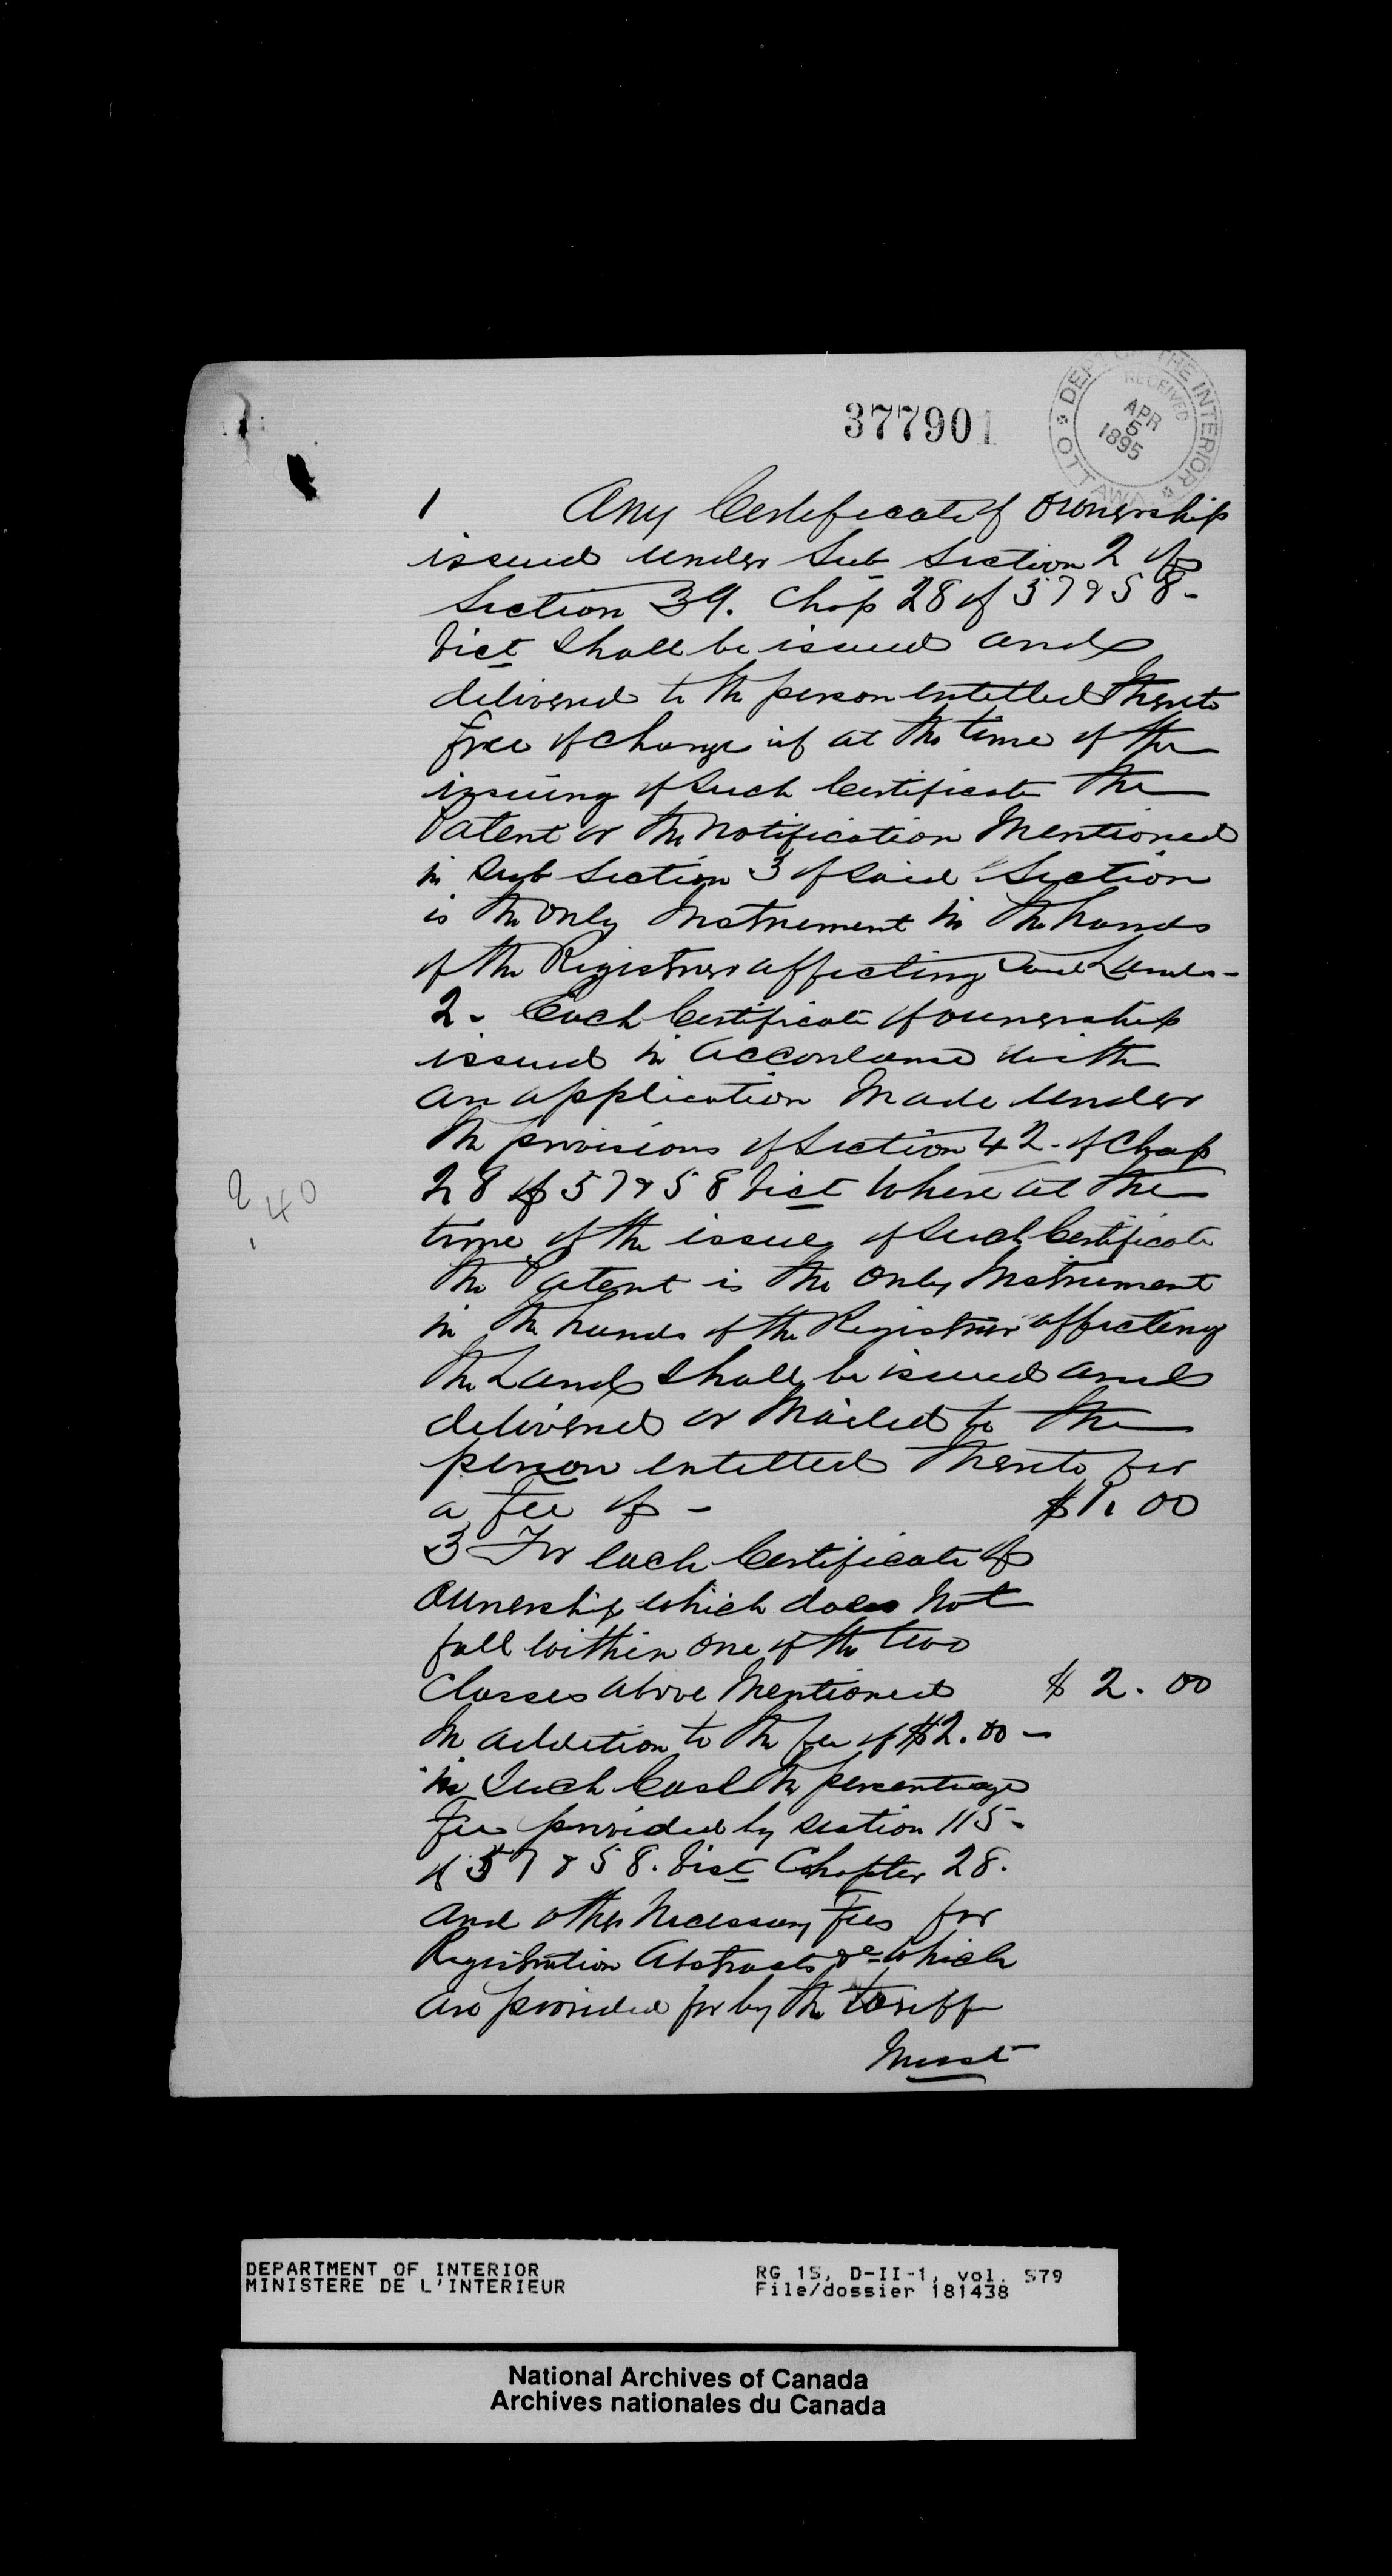 377901
DEPT OF THE INTERIOR
RECEIVED
APR
5
1895
OTTAWA
1 Any Certificate of Ownership
issued under Sub Section 2 of
Section 39. Chap 28 of 57 & 58-
Vict shall be issued and
delivered to the person entitled thereto
free of charge if at the time of the
issuing of such Certificate the
Patent or the notification mentioned
in Sub Section 3 of said Section
is the only Instrument in the hands
of the Registrar affecting said Lands-
2- Each Certificate of ownership
issued in accordance with
an application made under
the provisions of Section 42- of Chap
28 of 57 & 58 Vict where at the
time of the issue of such Certificate
the Patent is the only Instrument
in the hands of the Registrar affecting
the Land shall be issued and
delivered or mailed to the
person entitled thereto for
a fee of - $1.00
3 For each Certificate of
Ownership which does not
fall within one of the two
Classes above mentioned $2.00
In addition to the fee of $2.00-
in such Case the percentage
fee provided by section 115-
of 57 & 58. Vict Chapter 28.
and other necessary Fees for
Registration Abstracts &c which
are provided for by the tariff
Must
40
DEPARTMENT OF INTERIOR
MINISTERE DE L'INTERIEUR
RG 15, D-II-1, vol. 579
File/dossier 181438
National Archives of Canada
Archives nationales du Canada